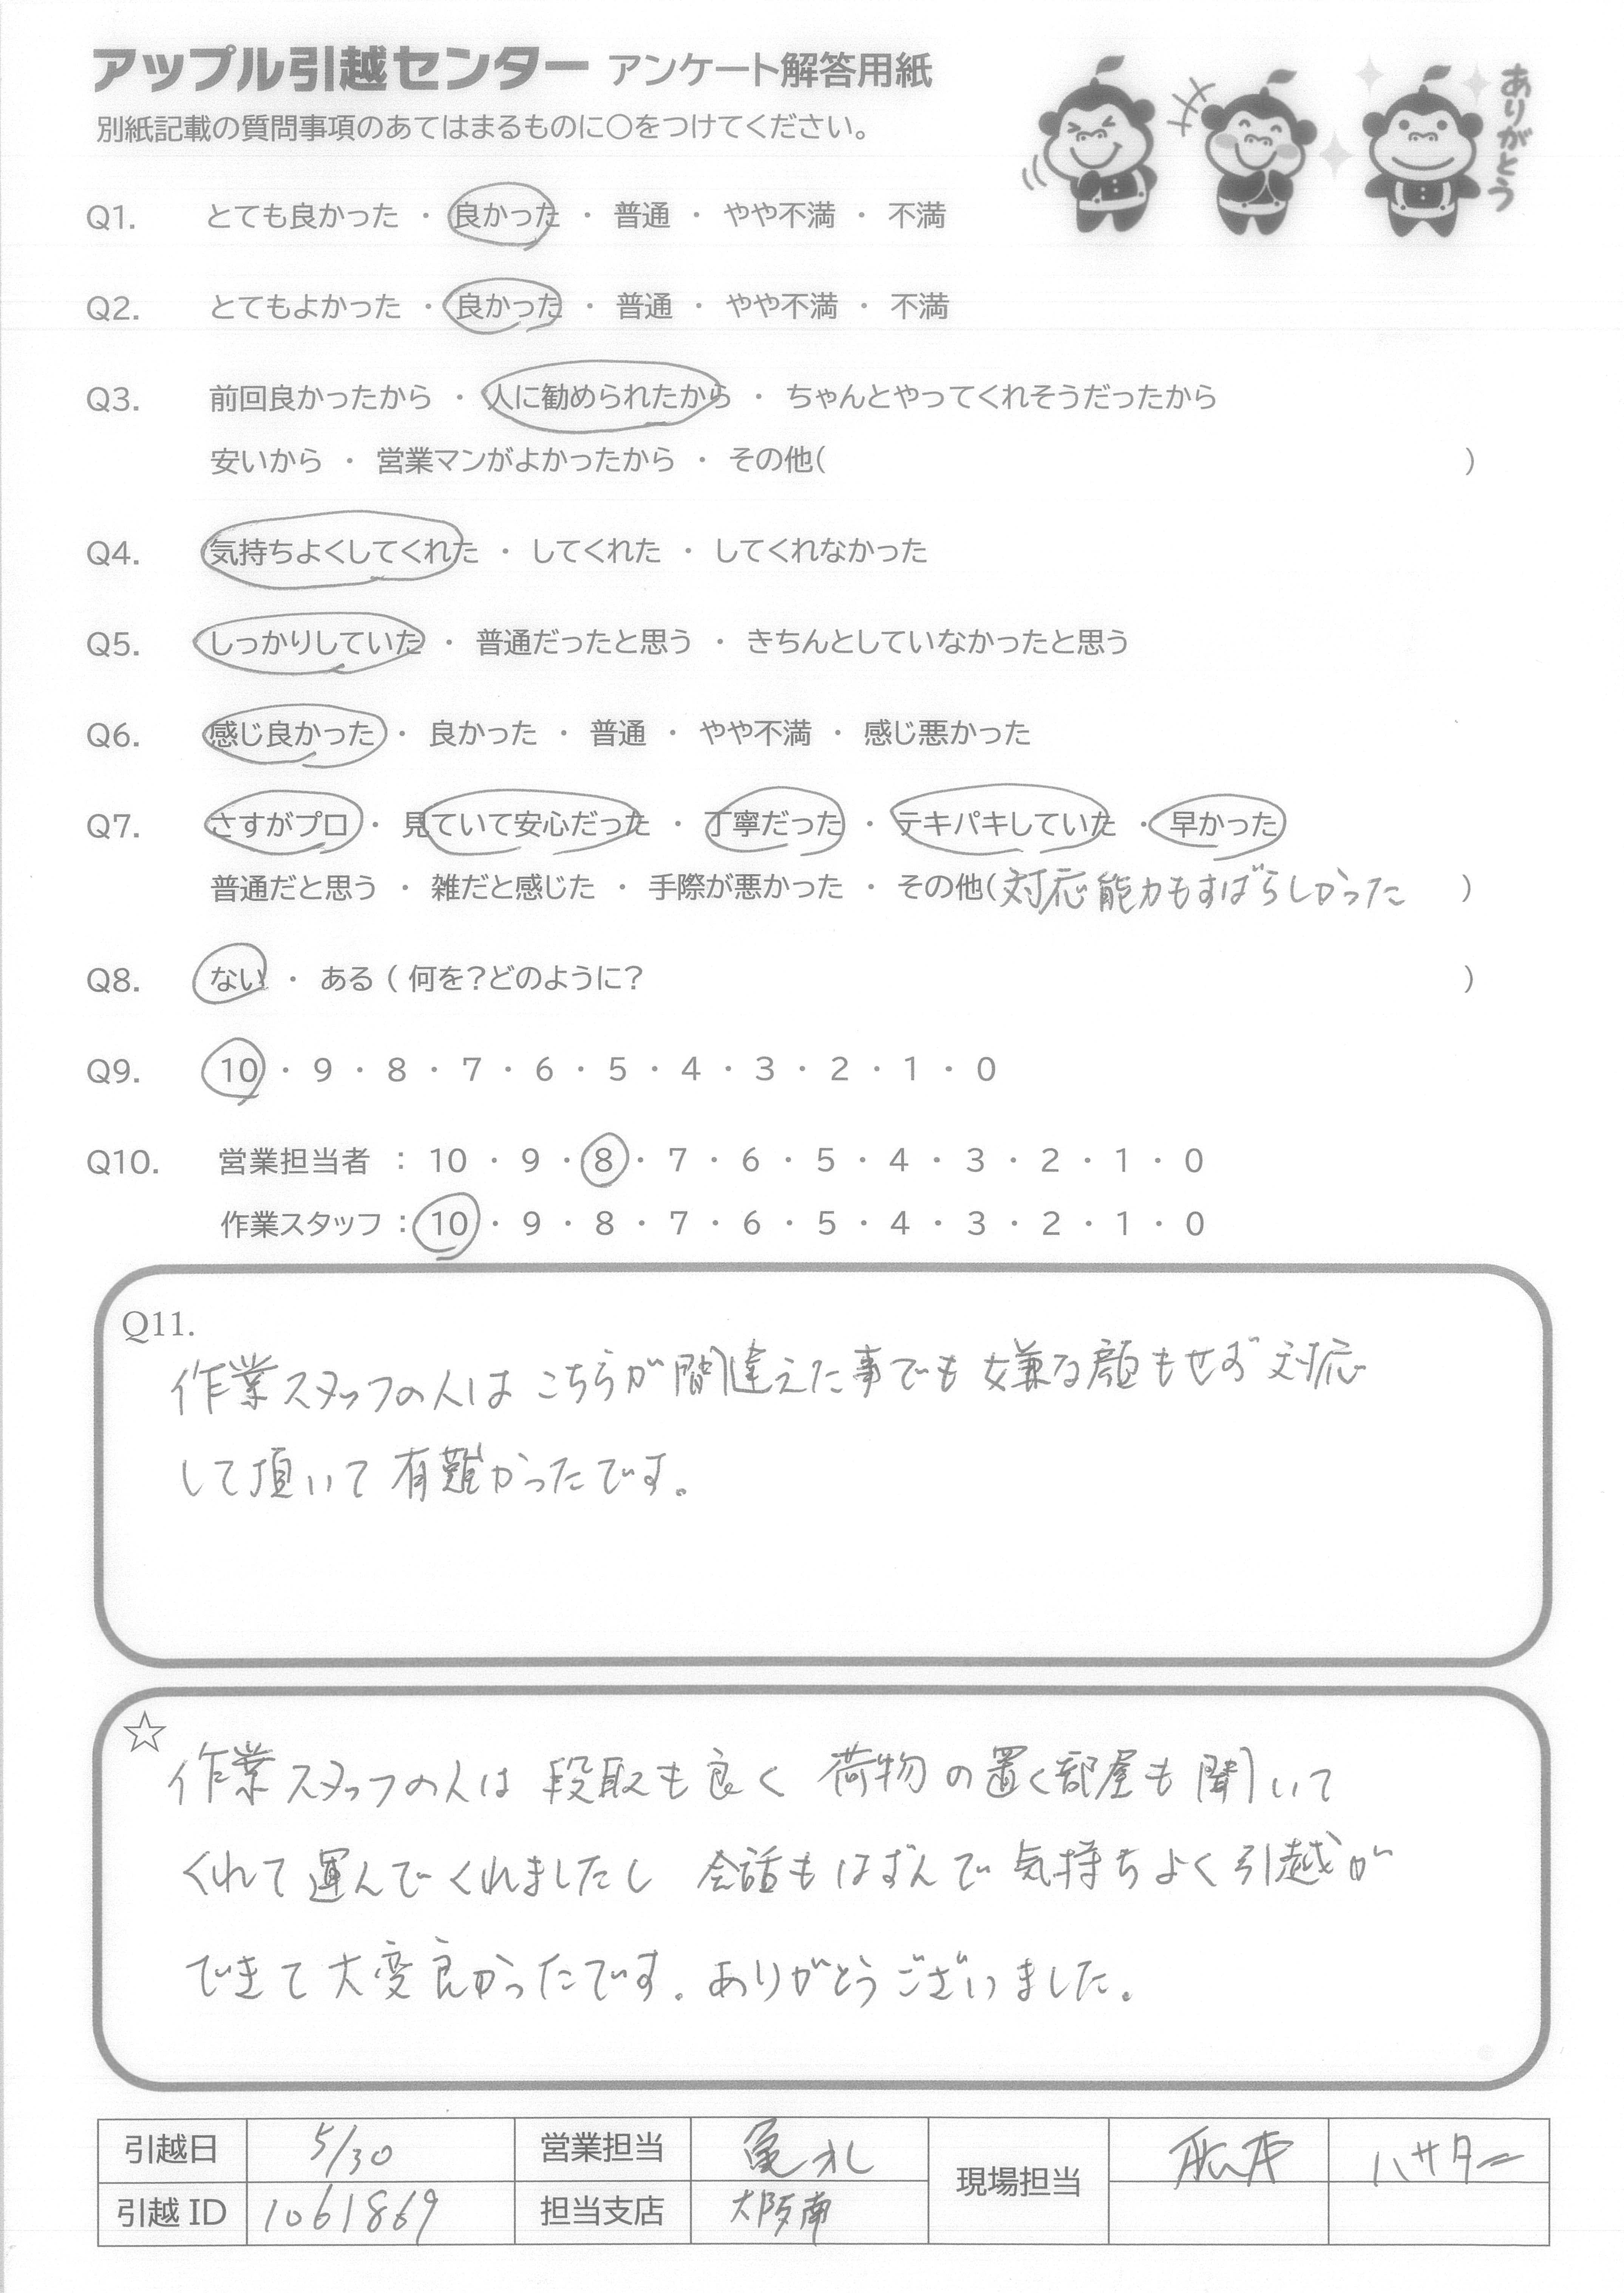 アップル引越センター アンケート解答用紙
別紙記載の質問事項のあてはまるものに○をつけてください。
ありがとう
Q1. とても良かった ・ 良かった ・ 普通 ・ やや不満 ・ 不満
Q2. とてもよかった ・ 良かった ・ 普通 ・ やや不満 ・ 不満
Q3. 前回良かったから ・ 人に勧められたから ・ ちゃんとやってくれそうだったから
安いから ・ 営業マンがよかったから ・ その他( )
Q4. 気持ちよくしてくれた ・ してくれた ・ してくれなかった
Q5. しっかりしていた ・ 普通だったと思う ・ きちんとしていなかったと思う
Q6. 感じ良かった ・ 良かった ・ 普通 ・ やや不満 ・ 感じ悪かった
Q7. さすがプロ ・ 見ていて安心だった ・ 丁寧だった ・ テキパキしていた ・ 早かった
普通だと思う ・ 雑だと感じた ・ 手際が悪かった ・ その他(対応能力もすばらしかった )
Q8. ない ・ ある ( 何を?どのように? )
Q9. 10 ・ 9 ・ 8 ・ 7 ・ 6 ・ 5 ・ 4 ・ 3 ・ 2 ・ 1 ・ 0
Q10. 営業担当者 : 10 ・ 9 ・ 8 ・ 7 ・ 6 ・ 5 ・ 4 ・ 3 ・ 2 ・ 1 ・ 0
作業スタッフ : 10 ・ 9 ・ 8 ・ 7 ・ 6 ・ 5 ・ 4 ・ 3 ・ 2 ・ 1 ・ 0
Q11.
作業スタッフの人は こちらが間違えた事でも 嫌な顔もせず 対応
して頂いて 有難かったです。
☆
作業スタッフの人は 段取も良く 荷物の置く部屋も聞いて
くれて 運んでくれましたし 会話もはずんで 気持ちよく引越が
できて 大変良かったです。ありがとうございました。
引越日 5/30 営業担当 現場担当 ハサター
引越 ID 1061869 担当支店 大阪南